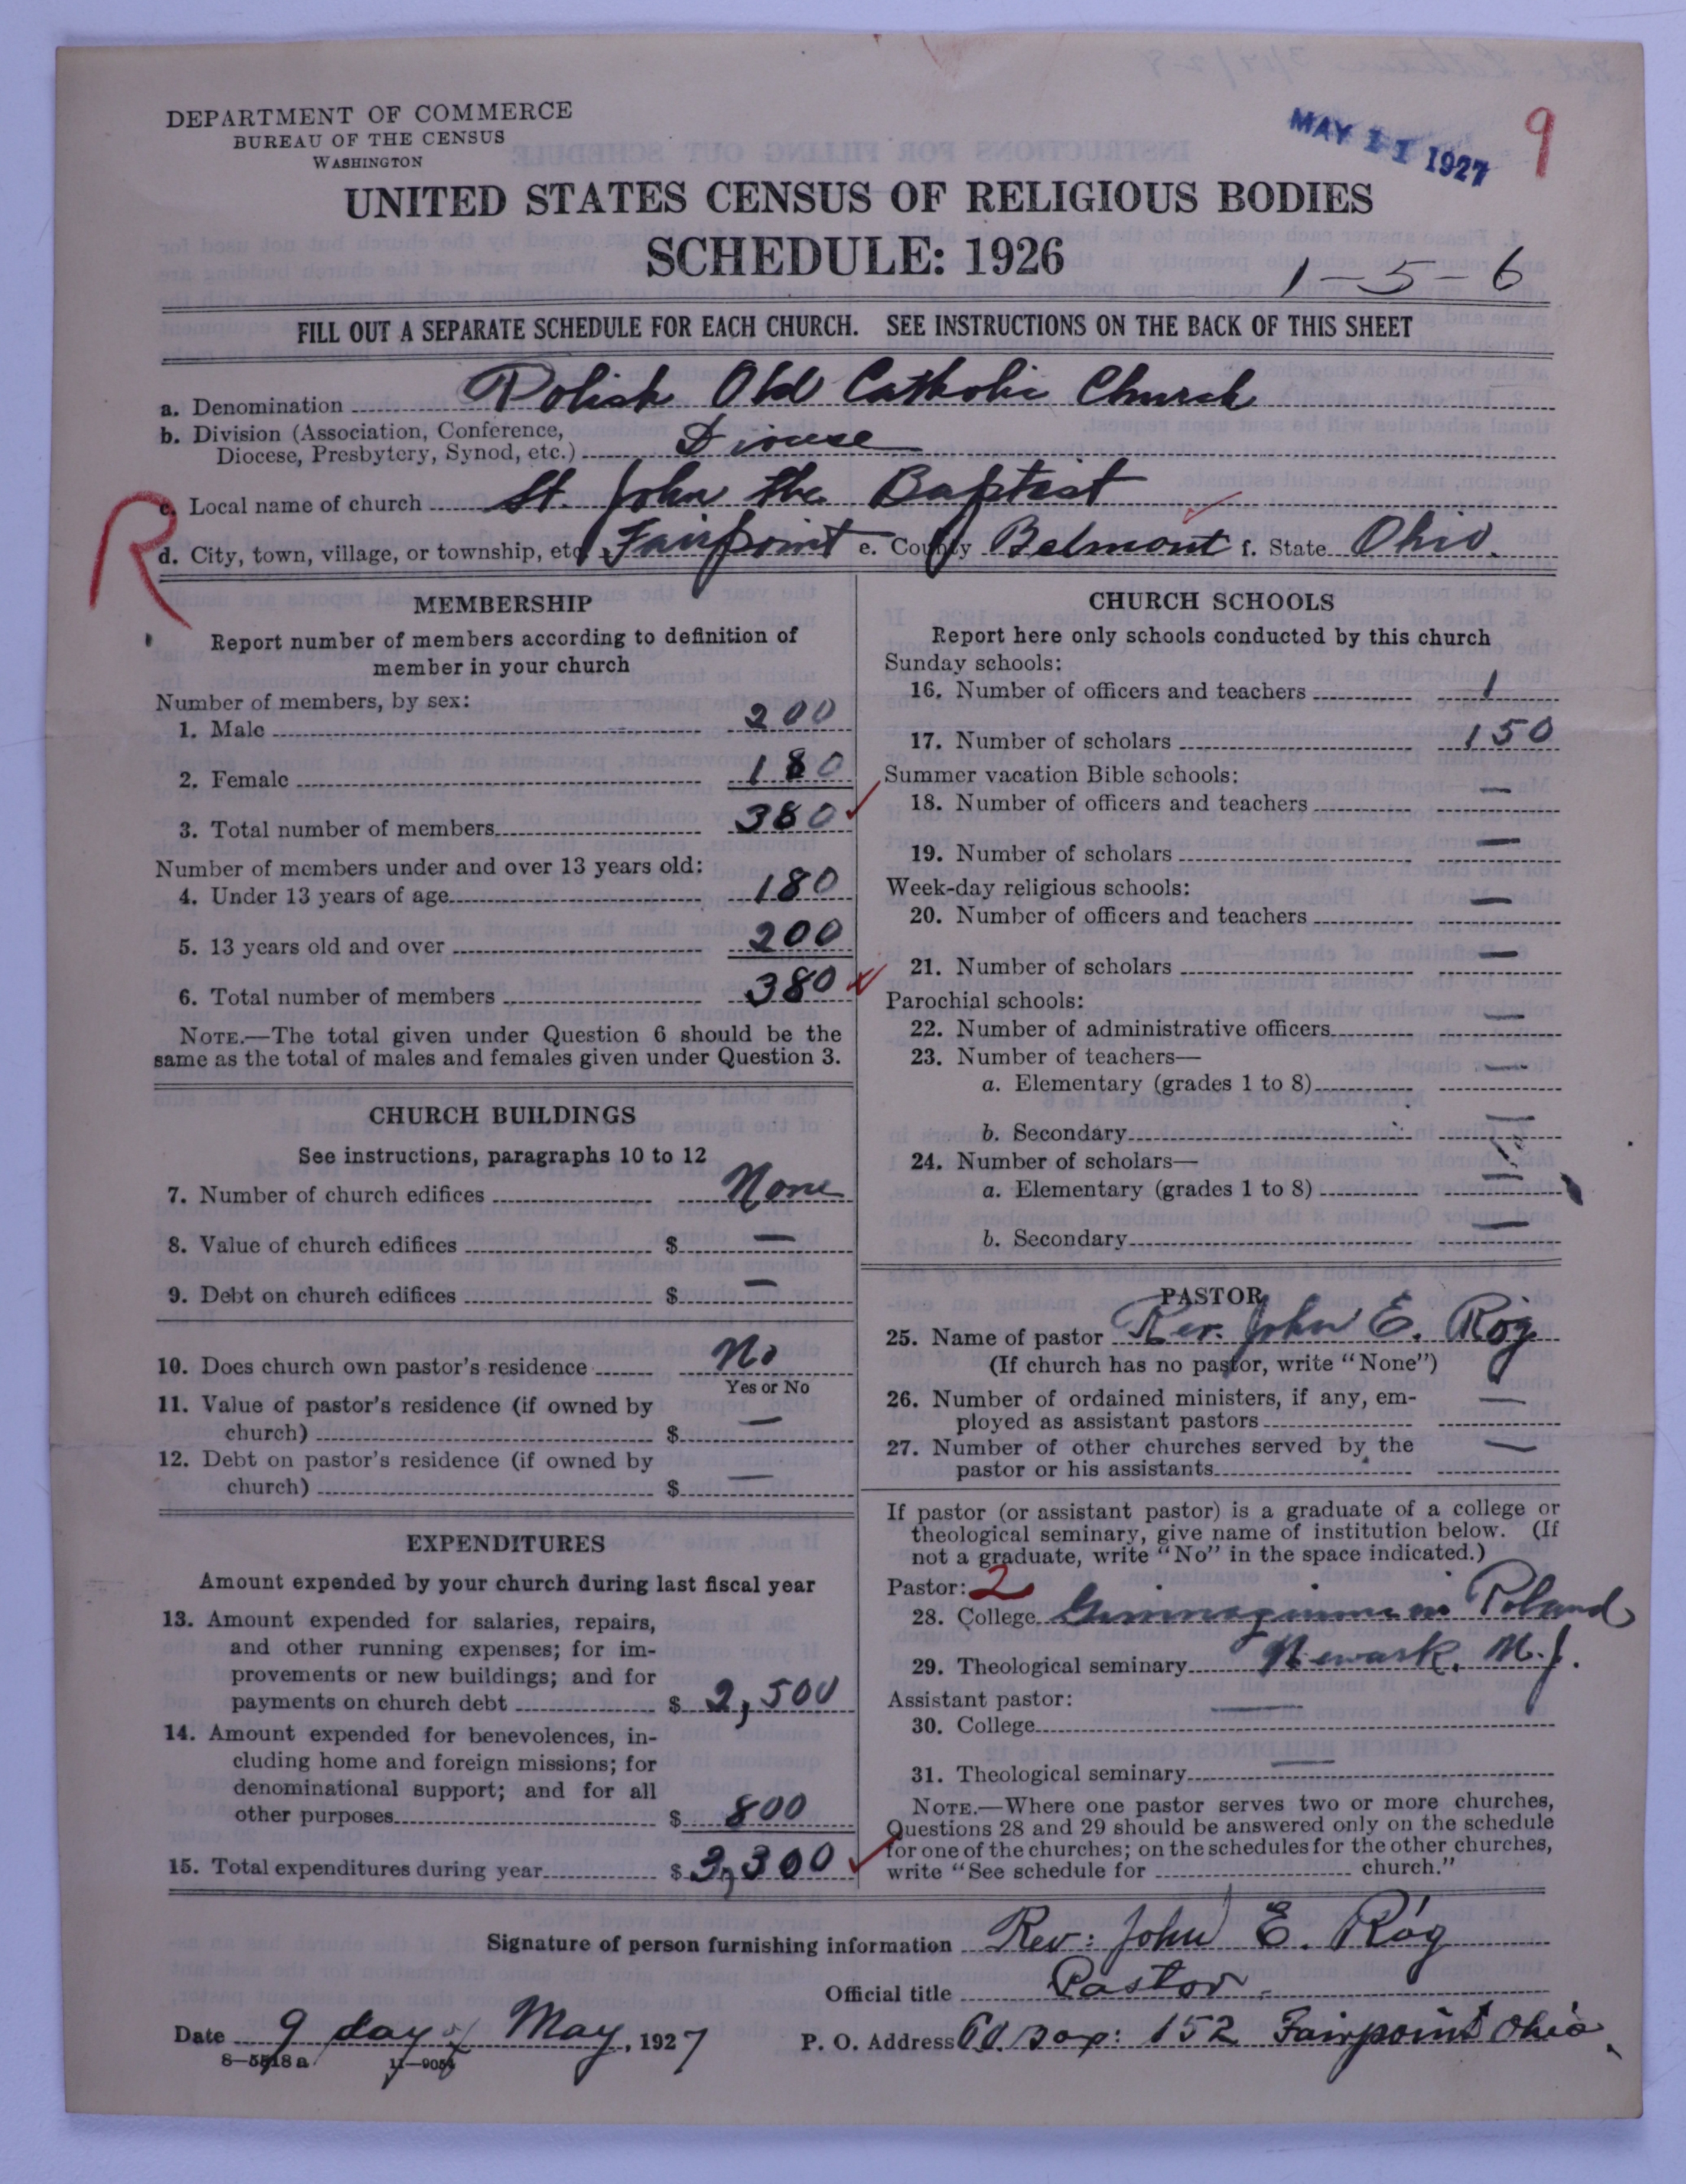 DEPARTMENT OF COMMERCE
BUREAU OF THE CENSUS
WASHINGTON
MAY 11 1927
9
UNITED STATES CENSUS OF RELIGIOUS BODIES
SCHEDULE: 1926
1-5-6
FILL OUT A SEPARATE SCHEDULE FOR EACH CHURCH. SEE INSTRUCTIONS ON THE BACK OF THIS SHEET
a. Denomination Polish Old Catholic Church
b. Division (Association, Conference,
Diocese, Presbytery, Synod, etc.) Diouse
R
c. Local name of church St. John the Baptist
d. City, town, village, or township, etc. Fairpoint e. County Belmont f. State Ohio.
MEMBERSHIP
Report number of members according to definition of
member in your church
Number of members, by sex:
1. Male 200
2. Female 180
3. Total number of members 380
Number of members under and over 13 years old:
4. Under 13 years of age 180
5. 13 years old and over 200
6. Total number of members 380
NOTE.—The total given under Question 6 should be the
same as the total of males and females given under Question 3.
CHURCH BUILDINGS
See instructions, paragraphs 10 to 12
7. Number of church edifices None
8. Value of church edifices $ —
9. Debt on church edifices $ —
10. Does church own pastor's residence No
Yes or No
11. Value of pastor's residence (if owned by
church) $ —
12. Debt on pastor's residence (if owned by
church) $ —
EXPENDITURES
Amount expended by your church during last fiscal year
13. Amount expended for salaries, repairs,
and other running expenses; for im-
provements or new buildings; and for
payments on church debt $ 2,500
14. Amount expended for benevolences, in-
cluding home and foreign missions; for
denominational support; and for all
other purposes $ 800
15. Total expenditures during year $ 3,300
CHURCH SCHOOLS
Report here only schools conducted by this church
Sunday schools:
16. Number of officers and teachers 1
17. Number of scholars 150
Summer vacation Bible schools:
18. Number of officers and teachers —
19. Number of scholars —
Week-day religious schools:
20. Number of officers and teachers —
21. Number of scholars —
Parochial schools:
22. Number of administrative officers —
23. Number of teachers—
a. Elementary (grades 1 to 8) —
b. Secondary —
24. Number of scholars—
a. Elementary (grades 1 to 8) —
b. Secondary —
PASTOR
25. Name of pastor Rev. John E. Róg
(If church has no pastor, write "None")
26. Number of ordained ministers, if any, em-
ployed as assistant pastors —
27. Number of other churches served by the
pastor or his assistants —
If pastor (or assistant pastor) is a graduate of a college or
theological seminary, give name of institution below. (If
not a graduate, write "No" in the space indicated.)
Pastor: 2
28. College in Poland
29. Theological seminary Newark. N.J.
Assistant pastor:
30. College —
31. Theological seminary —
NOTE.—Where one pastor serves two or more churches,
Questions 28 and 29 should be answered only on the schedule
for one of the churches; on the schedules for the other churches,
write "See schedule for church."
Signature of person furnishing information Rev: John E. Róg
Official title Pastor.
Date 9 day of May, 1927 P. O. Address Box: 152 Fairpoint Ohio
8-5518a 11-9054